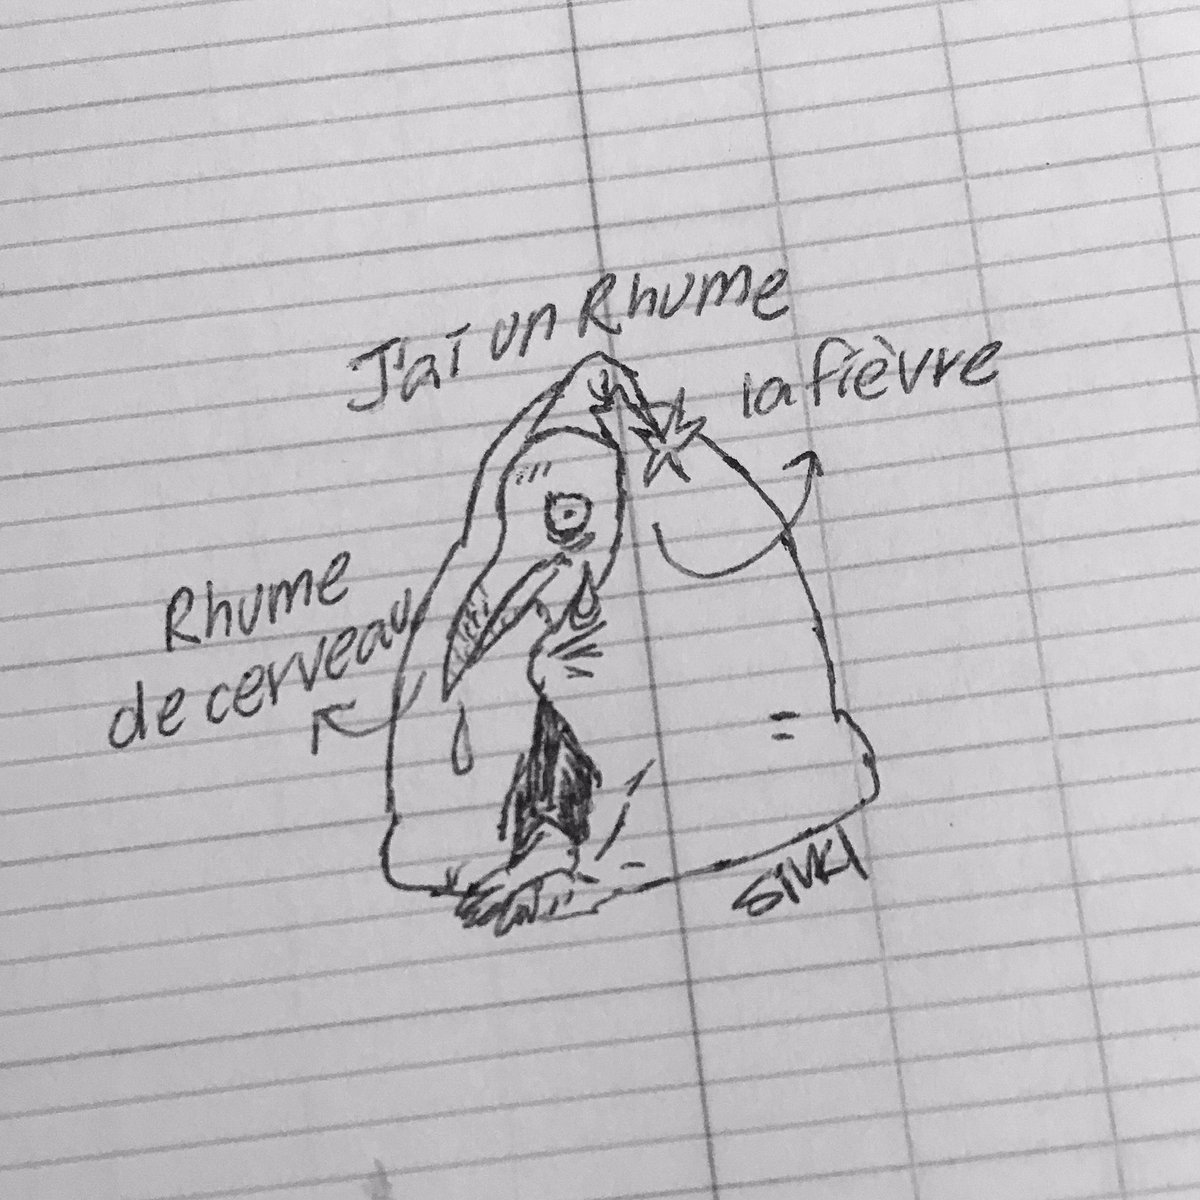 J'ai un Rhume
la fièvre
Rhume
de cerveau